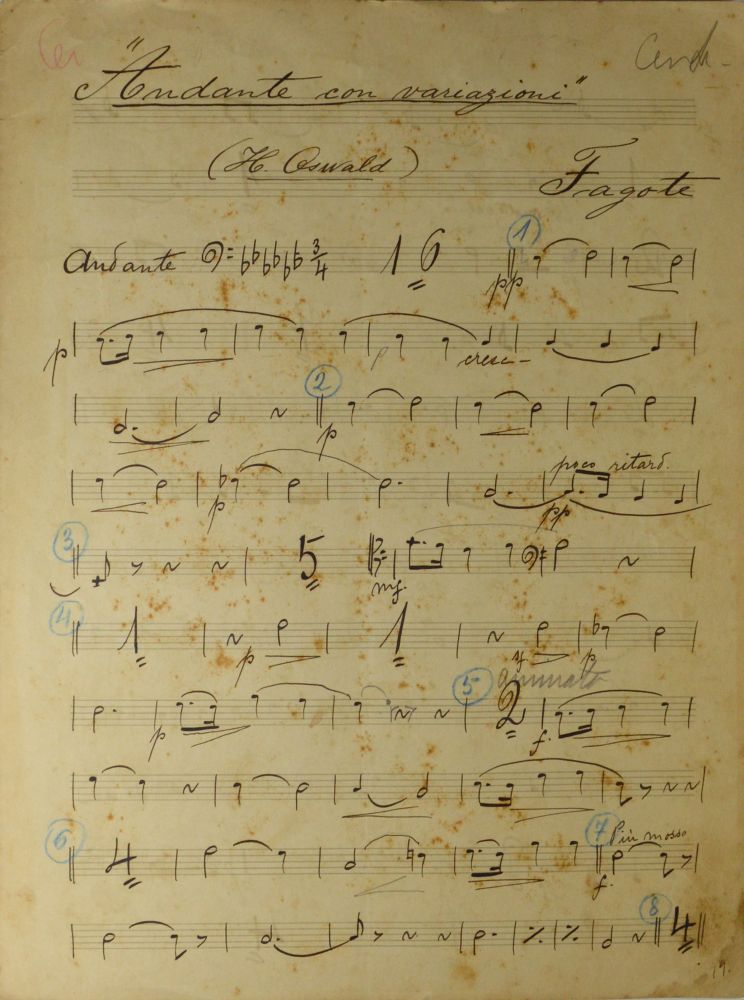 "Andante con variazioni"
(H. Oswald)
Fagote
Andante 3/4 16 1
pp
p cresc-
2
p
poco ritard.
p pp
3 5
mf.
4 1 1
p p
5 animato
2
p f.
6 4 7 Più mosso
f.
8 4